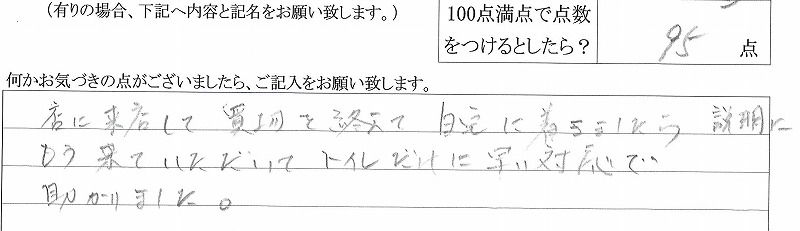 (有りの場合、下記へ内容と記名をお願い致します。)
100点満点で点数
をつけるとしたら?
95 点
何かお気づきの点がございましたら、ご記入をお願い致します。
店に来店して 買物を終えて 自宅に着きましたら 説明に
もう来ていただいて トイレだけに早い対応で
助かりました。